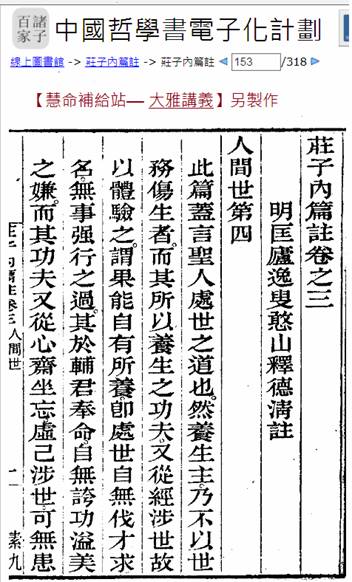 諸子百家
中國哲學書電子化計劃
線上圖書館 -> 莊子內篇註 -> 莊子內篇註 ◀ 153 /318 ▶
【慧命補給站— 大雅講義】另製作
莊子內篇註卷之三
明匡廬逸叟憨山釋德清註
人間世第四
此篇蓋言聖人處世之道也。然養生主。乃不以世
務傷生者。而其所以養生之功夫。又從經涉世故
以體驗之。謂果能自有所養。即處世自無伐才求
名。無事强行之過。其於輔君奉命。自無誇功溢美
之嫌。而其功夫又從心齋坐忘虛己涉世可無患
莊子內篇註卷三人間世 一 素九